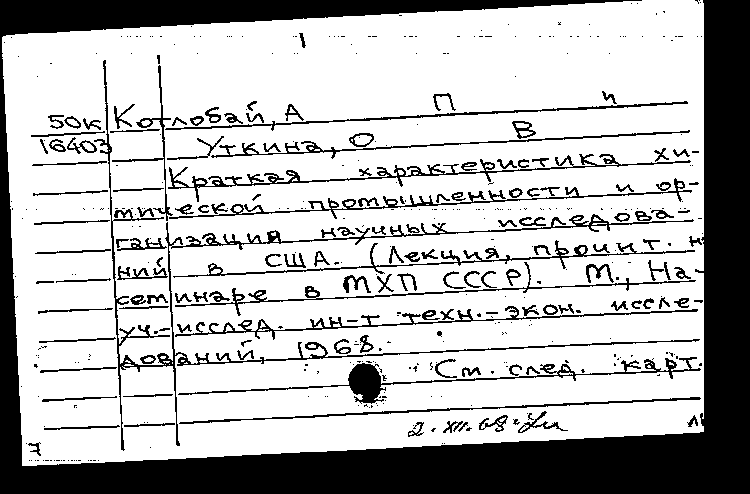 1
50к Котлобай, А П и
16403 Уткина, О В
Краткая характеристика хи-
мической промышленности и ор-
ганизация научных исследова-
ний в США. (Лекция, прочит. н
семинаре в МХП СССР). М., На-
уч.-исслед. ин-т техн.-экон. иссле-
дований, 1968.
См. след. карт.
2.XII.68.
7